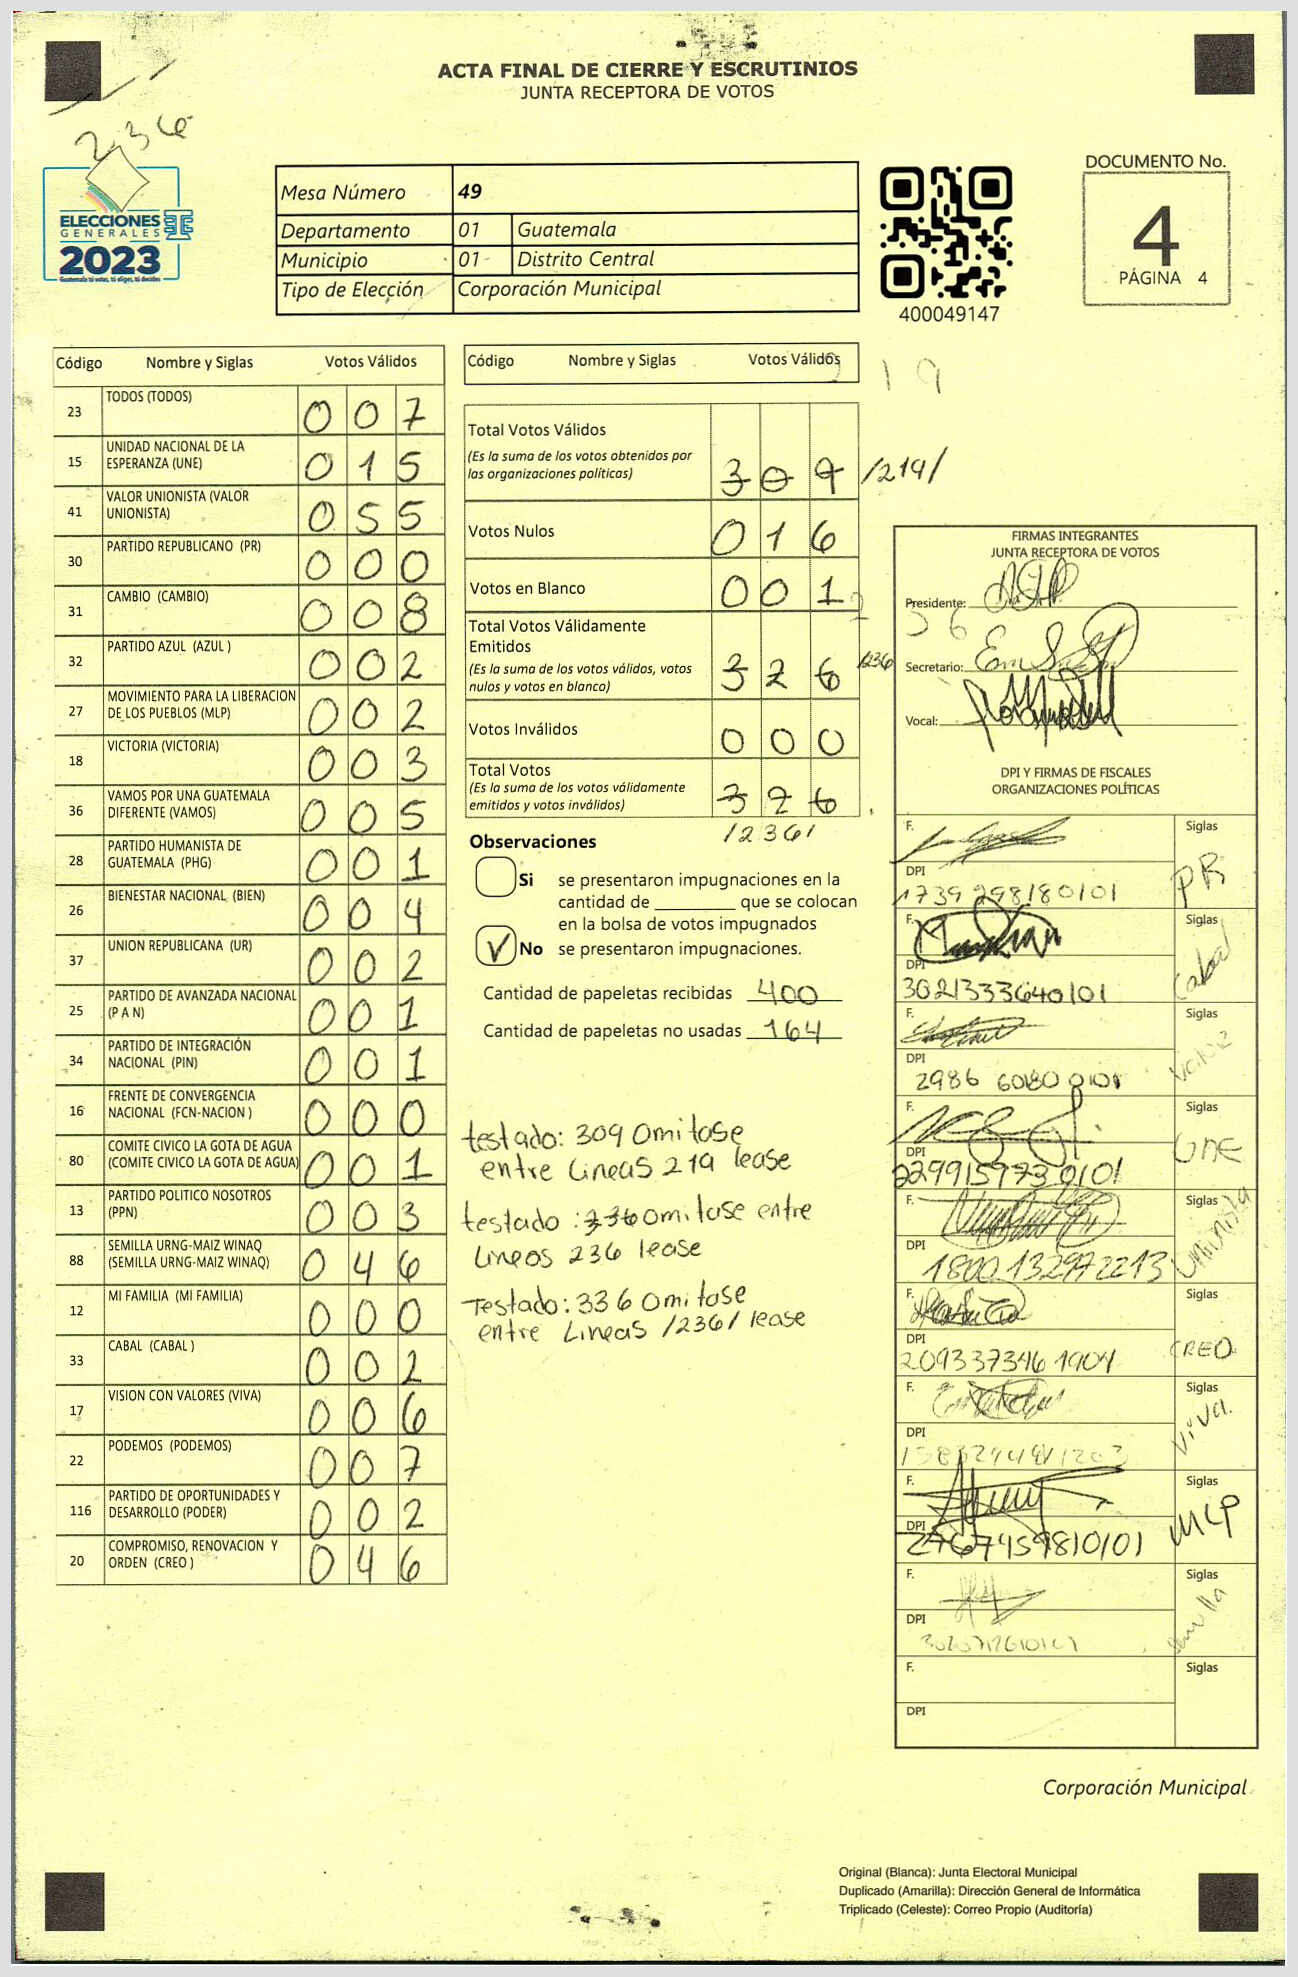 ACTA FINAL DE CIERRE Y ESCRUTINIOS
JUNTA RECEPTORA DE VOTOS
236
ELECCIONES
GENERALES
2023
Guatemala tú votas, tú eliges, tú decides
Mesa Número 49
Departamento 01 Guatemala
Municipio 01 Distrito Central
Tipo de Elección Corporación Municipal
400049147
DOCUMENTO No.
4
PÁGINA 4
Código Nombre y Siglas Votos Válidos
23 TODOS (TODOS) 0 0 7
15 UNIDAD NACIONAL DE LA
ESPERANZA (UNE) 0 1 5
41 VALOR UNIONISTA (VALOR
UNIONISTA) 0 5 5
30 PARTIDO REPUBLICANO (PR) 0 0 0
31 CAMBIO (CAMBIO) 0 0 8
32 PARTIDO AZUL (AZUL ) 0 0 2
27 MOVIMIENTO PARA LA LIBERACION
DE LOS PUEBLOS (MLP) 0 0 2
18 VICTORIA (VICTORIA) 0 0 3
36 VAMOS POR UNA GUATEMALA
DIFERENTE (VAMOS) 0 0 5
28 PARTIDO HUMANISTA DE
GUATEMALA (PHG) 0 0 1
26 BIENESTAR NACIONAL (BIEN) 0 0 4
37 UNION REPUBLICANA (UR) 0 0 2
25 PARTIDO DE AVANZADA NACIONAL
(P A N) 0 0 1
34 PARTIDO DE INTEGRACIÓN
NACIONAL (PIN) 0 0 1
16 FRENTE DE CONVERGENCIA
NACIONAL (FCN-NACION ) 0 0 0
80 COMITE CIVICO LA GOTA DE AGUA
(COMITE CIVICO LA GOTA DE AGUA) 0 0 1
13 PARTIDO POLITICO NOSOTROS
(PPN) 0 0 3
88 SEMILLA URNG-MAIZ WINAQ
(SEMILLA URNG-MAIZ WINAQ) 0 4 6
12 MI FAMILIA (MI FAMILIA) 0 0 0
33 CABAL (CABAL ) 0 0 2
17 VISION CON VALORES (VIVA) 0 0 6
22 PODEMOS (PODEMOS) 0 0 7
116 PARTIDO DE OPORTUNIDADES Y
DESARROLLO (PODER) 0 0 2
20 COMPROMISO, RENOVACION Y
ORDEN (CREO ) 0 4 6
Código Nombre y Siglas Votos Válidos
19
Total Votos Válidos
(Es la suma de los votos obtenidos por
las organizaciones políticas) 3 0 9 /219/
Votos Nulos 0 1 6
Votos en Blanco 0 0 1
Total Votos Válidamente
Emitidos
(Es la suma de los votos válidos, votos
nulos y votos en blanco) 3 2 6 /236
Votos Inválidos 0 0 0
Total Votos
(Es la suma de los votos válidamente
emitidos y votos inválidos) 3 2 6
/236/
Observaciones
Si se presentaron impugnaciones en la
cantidad de ________ que se colocan
en la bolsa de votos impugnados
No se presentaron impugnaciones.
Cantidad de papeletas recibidas 400
Cantidad de papeletas no usadas 164
testado: 309 Omitase
entre Lineas 219 lease
testado: 336 omitase entre
Lineas 236 lease
Testado: 336 Omitase
entre Lineas /236/ lease
FIRMAS INTEGRANTES
JUNTA RECEPTORA DE VOTOS
Presidente:
Secretario:
Vocal:
DPI Y FIRMAS DE FISCALES
ORGANIZACIONES POLÍTICAS
F. Siglas
DPI PR
1739 298180101
F. Siglas
DPI Cabal
3021333640101
F. Siglas
DPI
2986 60180 0101
F. Siglas
DPI UNE
2299159730101
F. Siglas
DPI Unionista
1800 132972213
F. Siglas
DPI CREO
209337346 1904
F. Siglas
DPI Viva
F. Siglas
DPI MLP
2767459810101
F. Siglas
DPI Semilla
F. Siglas
DPI
Corporación Municipal
Original (Blanca): Junta Electoral Municipal
Duplicado (Amarilla): Dirección General de Informática
Triplicado (Celeste): Correo Propio (Auditoría)